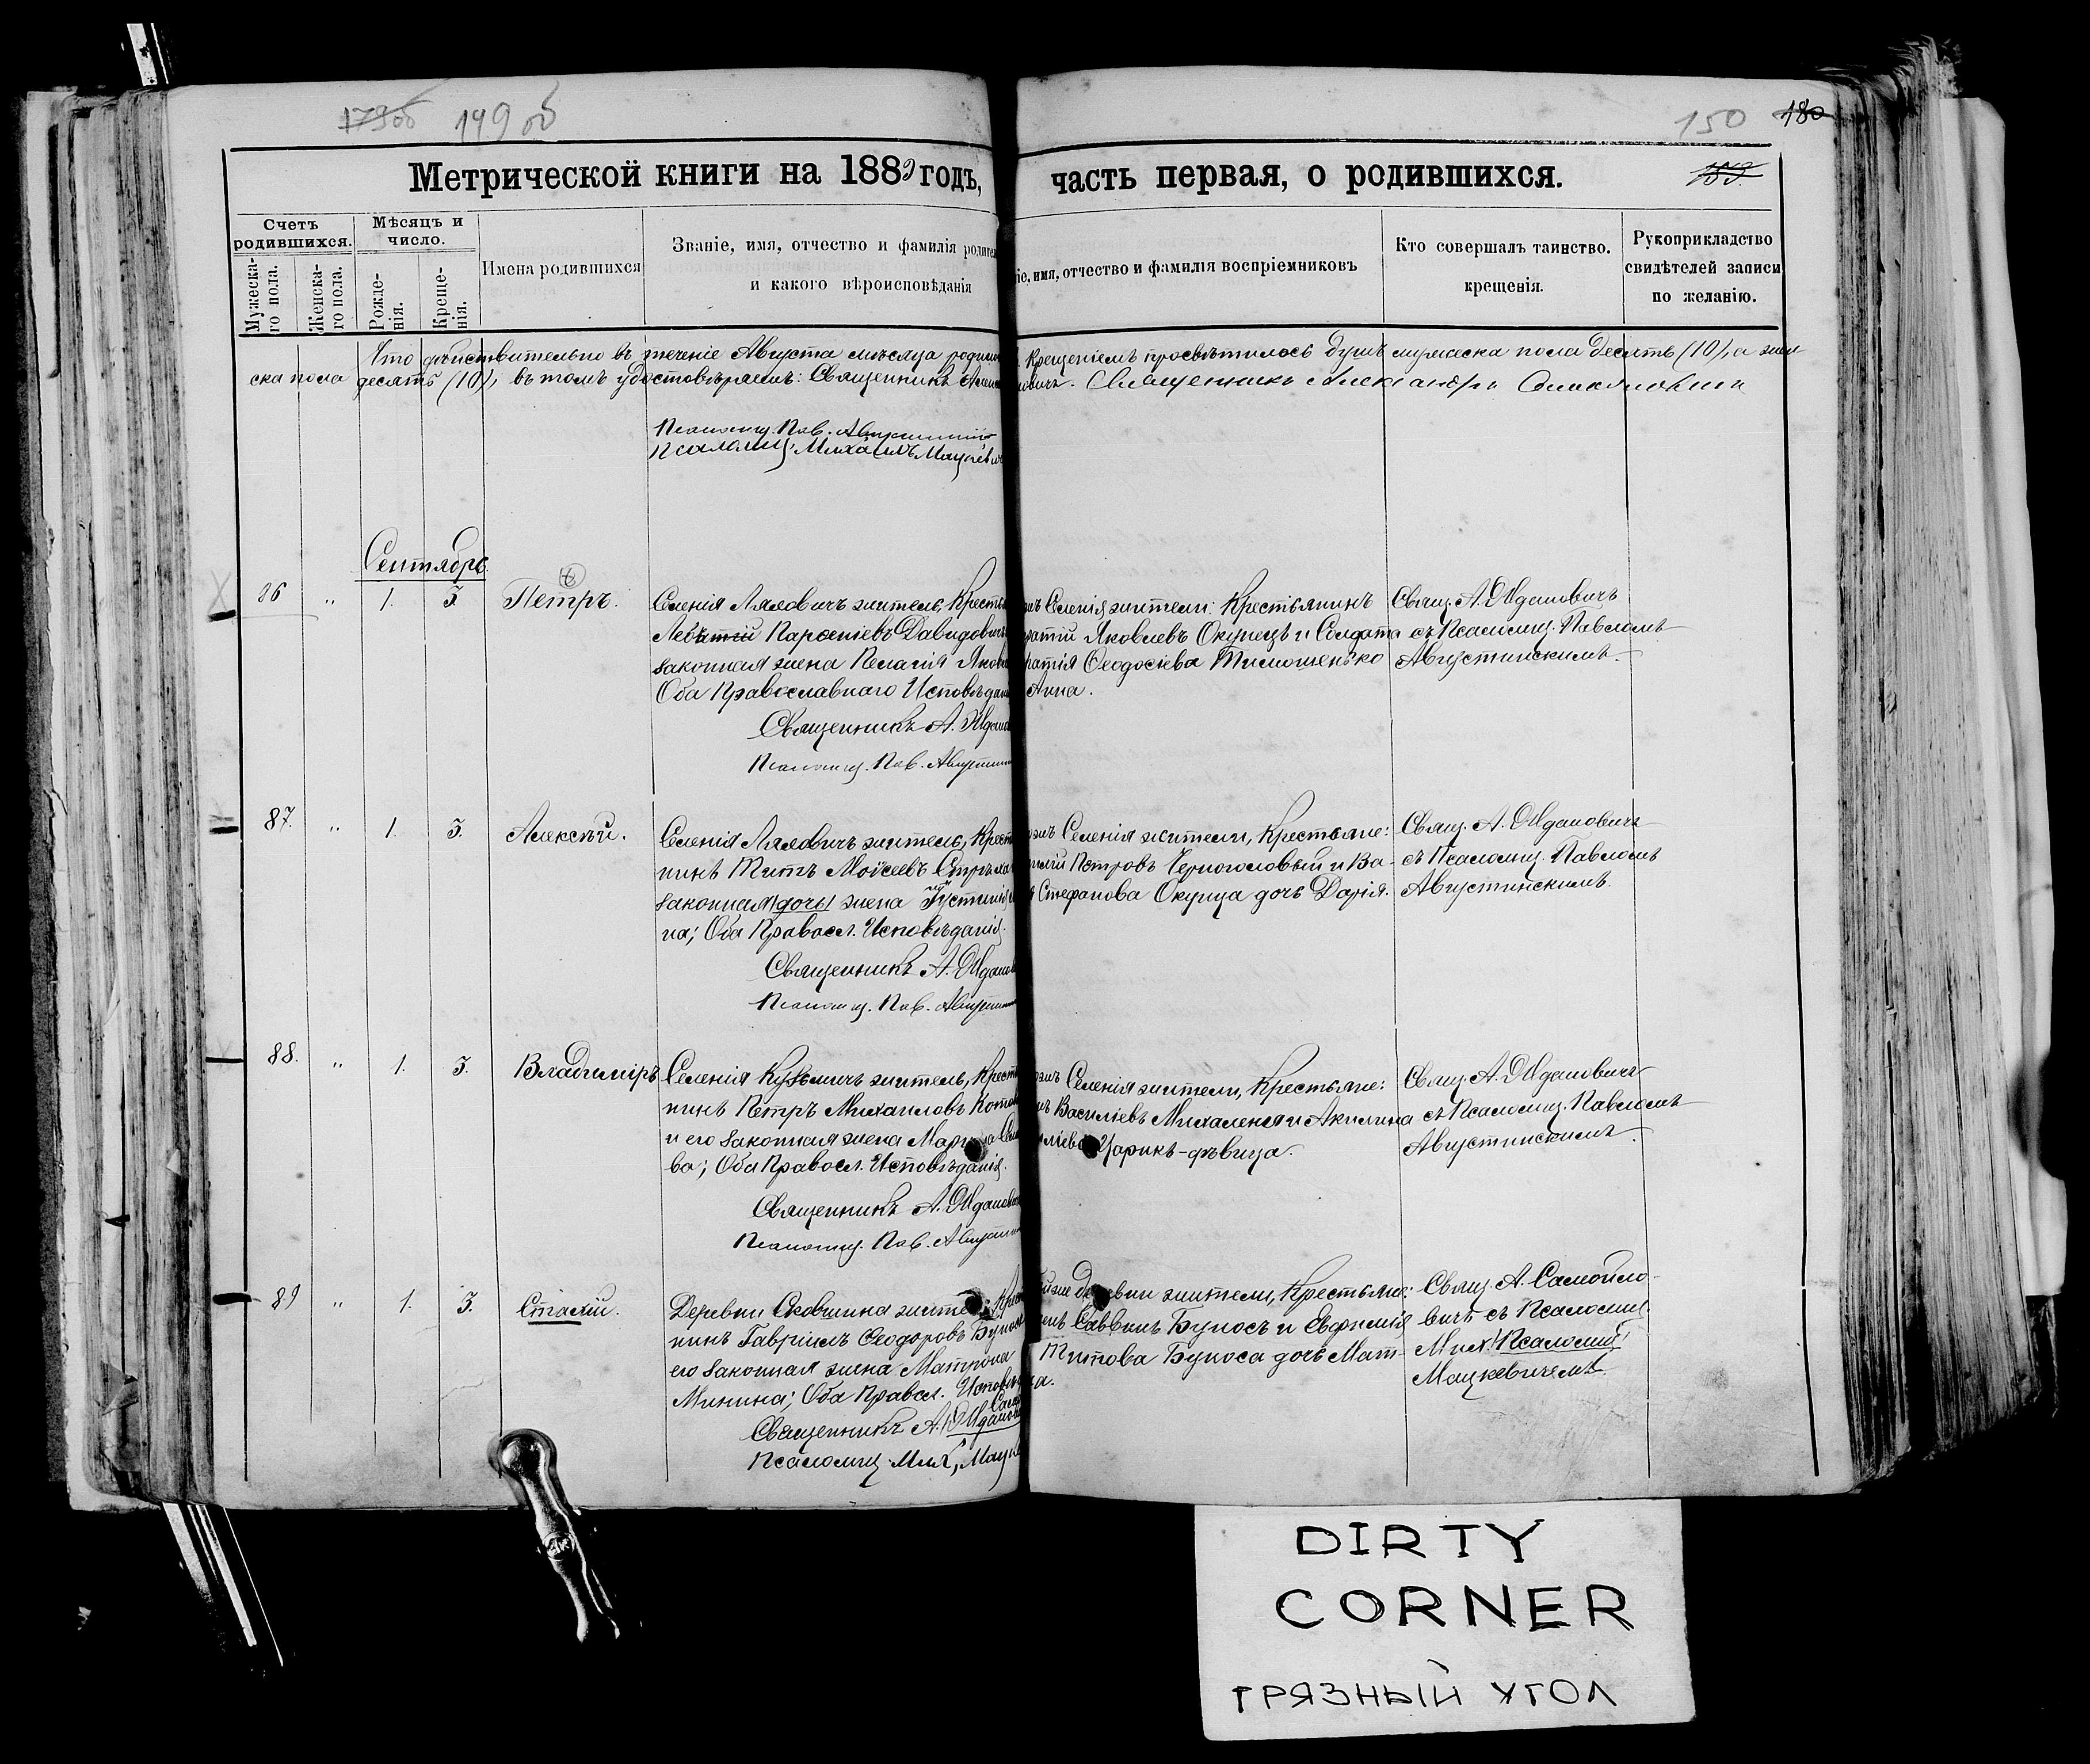 179об 149 об
150 180
Метрической книги на 1889 годъ, часть первая, о родившихся.
153.
Счетъ родившихся.
Мѣсяцъ и число.
Мужеска-го пола.
Женска-го пола.
Рожде-нія.
Креще-нія.
Имена родившихся
Званіе, имя, отчество и фамилія родител
и какого вѣроисповѣданія
іе, имя, отчество и фамилія воспріемниковъ
Кто совершалъ таинство.
крещенія.
Рукоприкладство
свидѣтелей записи
по желанію.
Что дѣйствительно въ теченіе Августа мѣсяца родило Крещеніемъ просвѣтилось душъ мужеска пола десять (10), а жен
ска пола десять (10), въ томъ удостовѣряемъ: Священникъ Священникъ Александръ
Псаломщ. Пав. Августинскій
Псаломщ. Михаилъ Мацкевич
Сентябрь.
86 " 1. 3. Петръ.
Селенія Ляховичъ житель, Крестья
Пароеніевъ Давидович
законная жена Пелагія Яков
Оба Православнаго Исповѣдан
Священникъ А. Ждан
Псаломщ. Пав. Августин
Селенія жители: Крестьянинъ
Яковлевъ Окунецъ и Солдата
Ѳеодосіева Тимошенько
Анна.
Свящ. А. Ждановичъ
съ Псаломщ. Павломъ
Августинскимъ.
87. " 1. 3. Алексѣй.
Селенія Ляховичъ житель, Крест
нинъ Титъ Моѵсеевъ
законная дочь жена Іустинія
на; Оба Правосл. Исповѣданія.
Священникъ А. Ждано
Псаломщ. Пав. Августин
Селенія жители, Крестьяне:
Петровъ Черноголовый и Ва-
Стефанова Окунца дочь Дарія.
Свящ. А. Ждановичъ
съ Псаломщ. Павломъ
Августинскимъ.
88. " 1. 3. Владиміръ
Селенія Кузьмичъ житель, Крест
нинъ Петръ Михаиловъ
и его законная жена
ва; Оба Правосл. Исповѣданія.
Священникъ А. Жданов
Псаломщ. Пав. Августин
Селенія жители, Крестьяне:
Василіевъ Михаленя и Акилина
Царикъ-дѣвица.
Свящ. А. Ждановичъ
съ Псаломщ. Павломъ
Августинскимъ.
89 " 1. 3. Стахій.
Деревни
нинъ Гавріилъ Ѳеодоровъ
его законная жена Матрона
Минина; Оба Правосл. Исповѣ
Священникъ А. Ждано
Псаломщ. Мих. Мацк
жители, Крестьяне:
Саввинъ Букосъ и Евфимія
Титова Букоса дочь Мат-
на.
Свящ. А. Самойло-
вичъ съ Псаломщ.
Мих. Псаломщ.
Мацкевичемъ.
DIRTY
CORNER
ГРЯЗНЫЙ УГОЛ